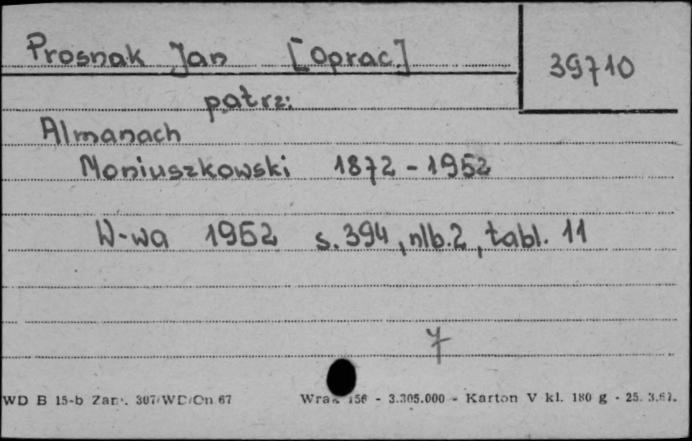 Prosnak Jan [Oprac.]
39710
patrz:
Almanach
Moniuszkowski 1872 - 1952
W-wa 1952 s. 394, nlb. 2, tabl. 11
7
WD B 15-b Zam. 307/WD/On 67 - 3.305.000 - Karton V kl. 180 g - 25. 3.67.